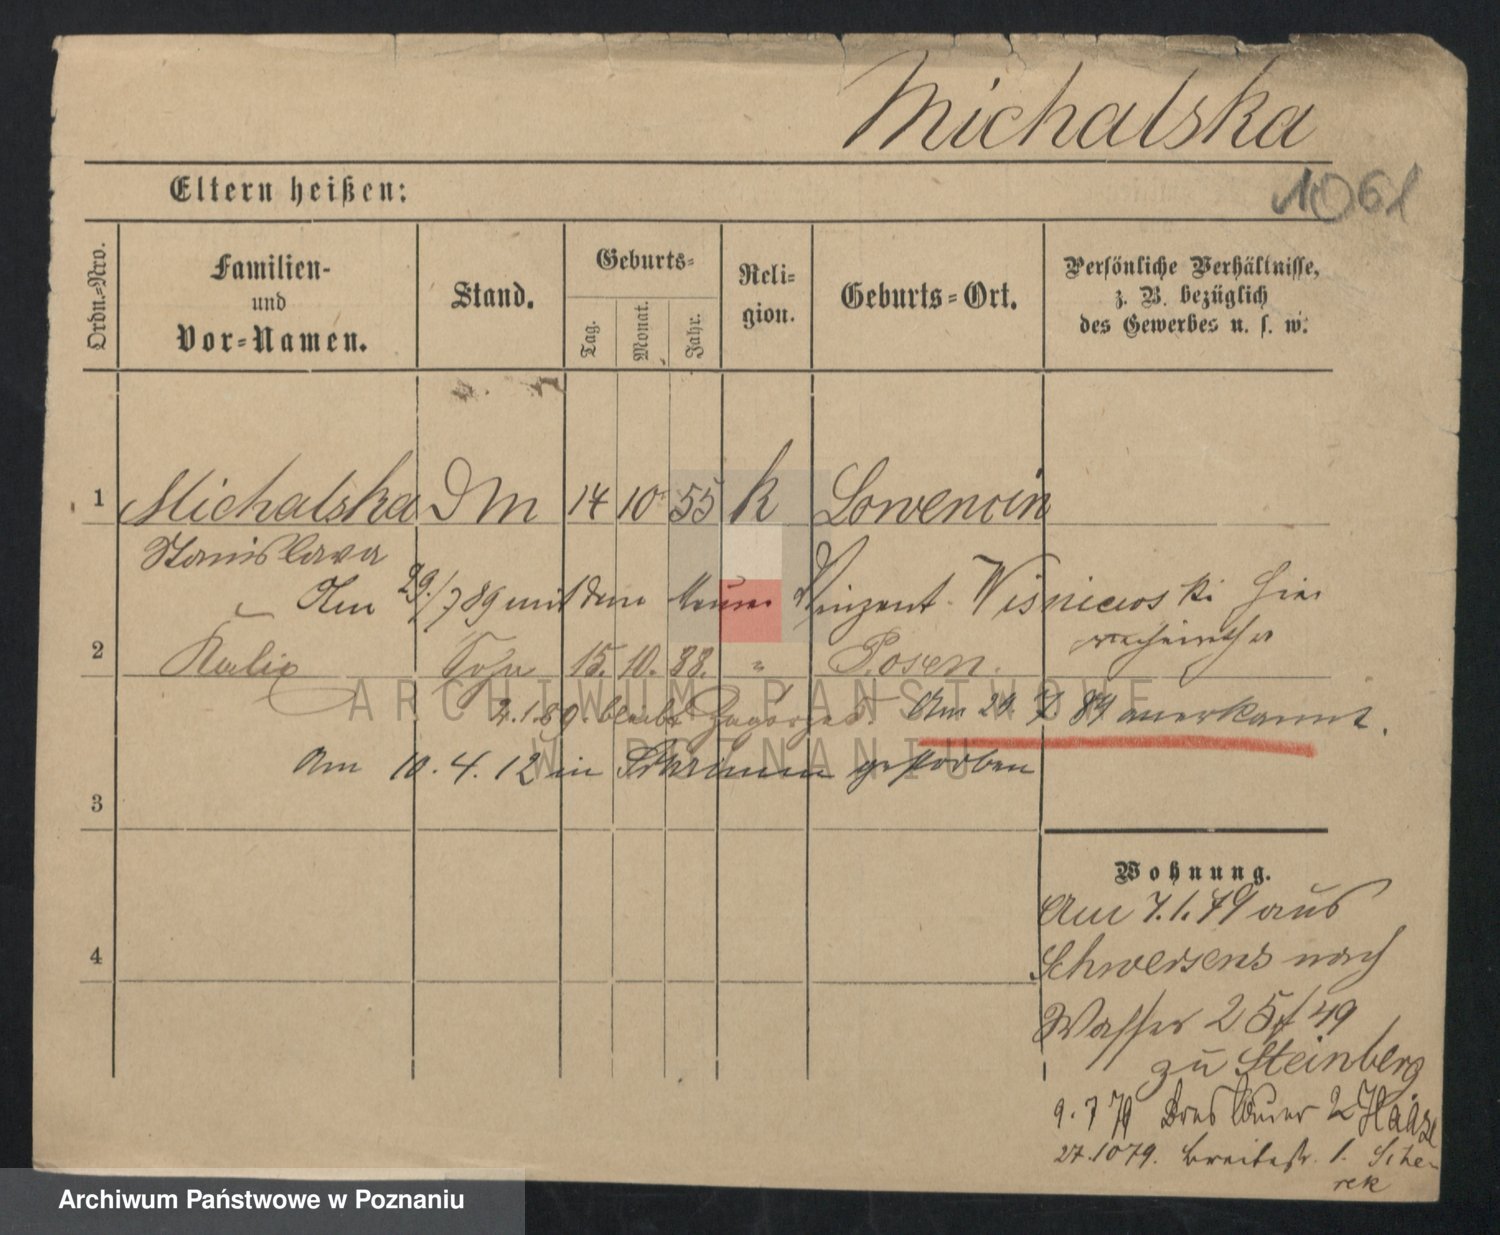 Michalska
1061
Eltern heißen:
Ordn.-Nro.
Familien-
und
Vor-Namen.
Stand.
Geburts-
Tag.
Monat.
Jahr.
Reli-
gion.
Geburts-Ort.
Persönliche Verhältnisse,
z. B. bezüglich
des Gewerbes u. s. w.
1 Michalska DM 14 10 55 k Lowencin
Stanislava
Am 29./7 89 mit dem Maurer Vinzent Wisniewski hier
verheirathet
2 Kalix Sohn 15. 10. 88. " Posen.
2.1.89. bleibt Am 29. 7 89 anerkannt.
Am 10.4.12 in Schrimm gestorben
3
4
Wohnung.
Am 7.1.79 aus
Schwersenz nach
Wasser 25 /49
zu Steinberg
9.7 79 Breslauer 2 Haase
27.10 79. Breitestr. 1. Sche-
rek
ARCHIWUM PAŃSTWOWE
W POZNANIU
Archiwum Państwowe w Poznaniu